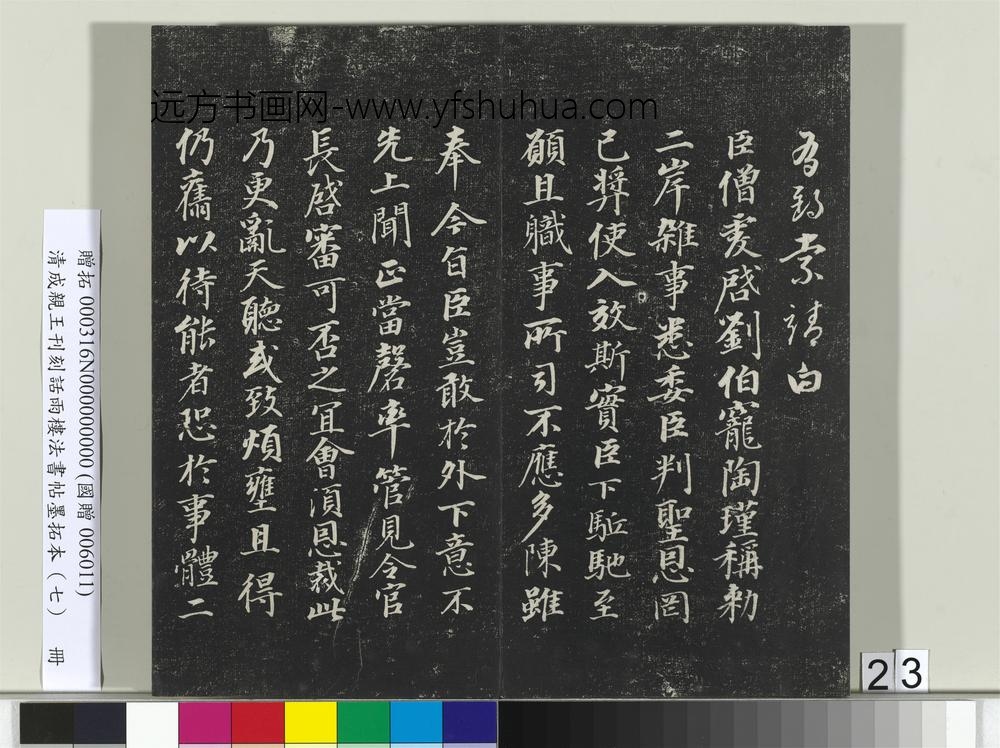 远方书画网-www.yfshuhua.com
靖白
臣僧虔啓劉伯寵陶瑾稱勑
二岸雜事悉委臣判聖恩罔
已獎使入放斯實臣下駈馳至
願且職事所司不應多陳雖
奉令旨臣豈敢於外下意不
先上聞正當罄率管見令官
長啓審可否之宜會須恩裁此
乃更亂天聽或致煩壅且得
仍舊以待能者恐於事體二
贈拓 000316N000000000(國贈 006011)
清成親王刊刻話雨樓法書帖墨拓本(七) 冊
23